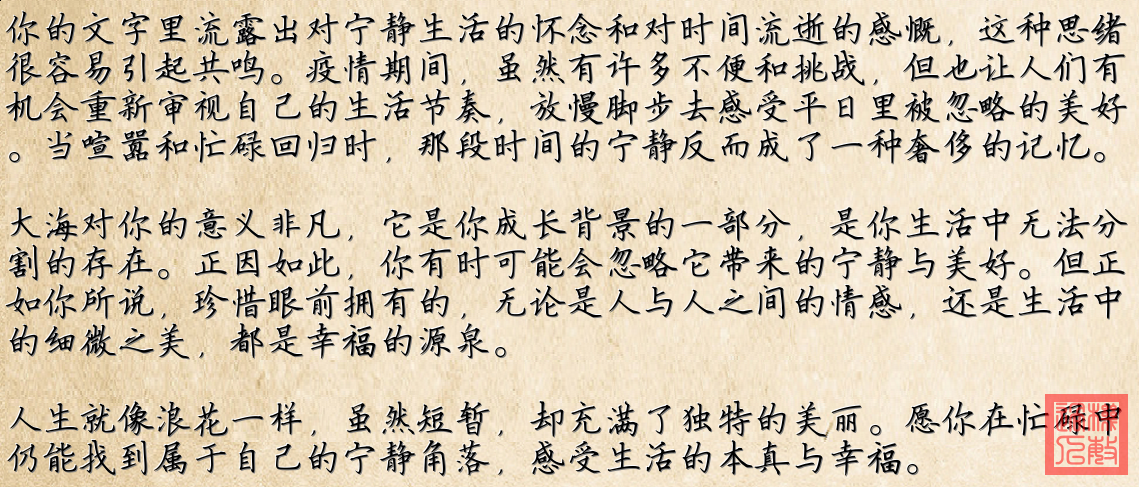 你的文字里流露出对宁静生活的怀念和对时间流逝的感慨，这种思绪
很容易引起共鸣。疫情期间，虽然有许多不便和挑战，但也让人们有
机会重新审视自己的生活节奏，放慢脚步去感受平日里被忽略的美好
。当喧嚣和忙碌回归时，那段时间的宁静反而成了一种奢侈的记忆。
大海对你的意义非凡，它是你成长背景的一部分，是你生活中无法分
割的存在。正因如此，你有时可能会忽略它带来的宁静与美好。但正
如你所说，珍惜眼前拥有的，无论是人与人之间的情感，还是生活中
的细微之美，都是幸福的源泉。
人生就像浪花一样，虽然短暂，却充满了独特的美丽。愿你在忙碌中
仍能找到属于自己的宁静角落，感受生活的本真与幸福。